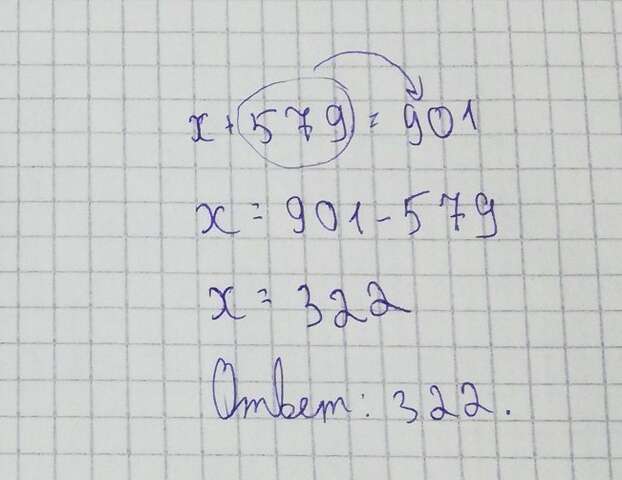 x + 579 = 901
x = 901 - 579
x = 322
Ответ: 322.